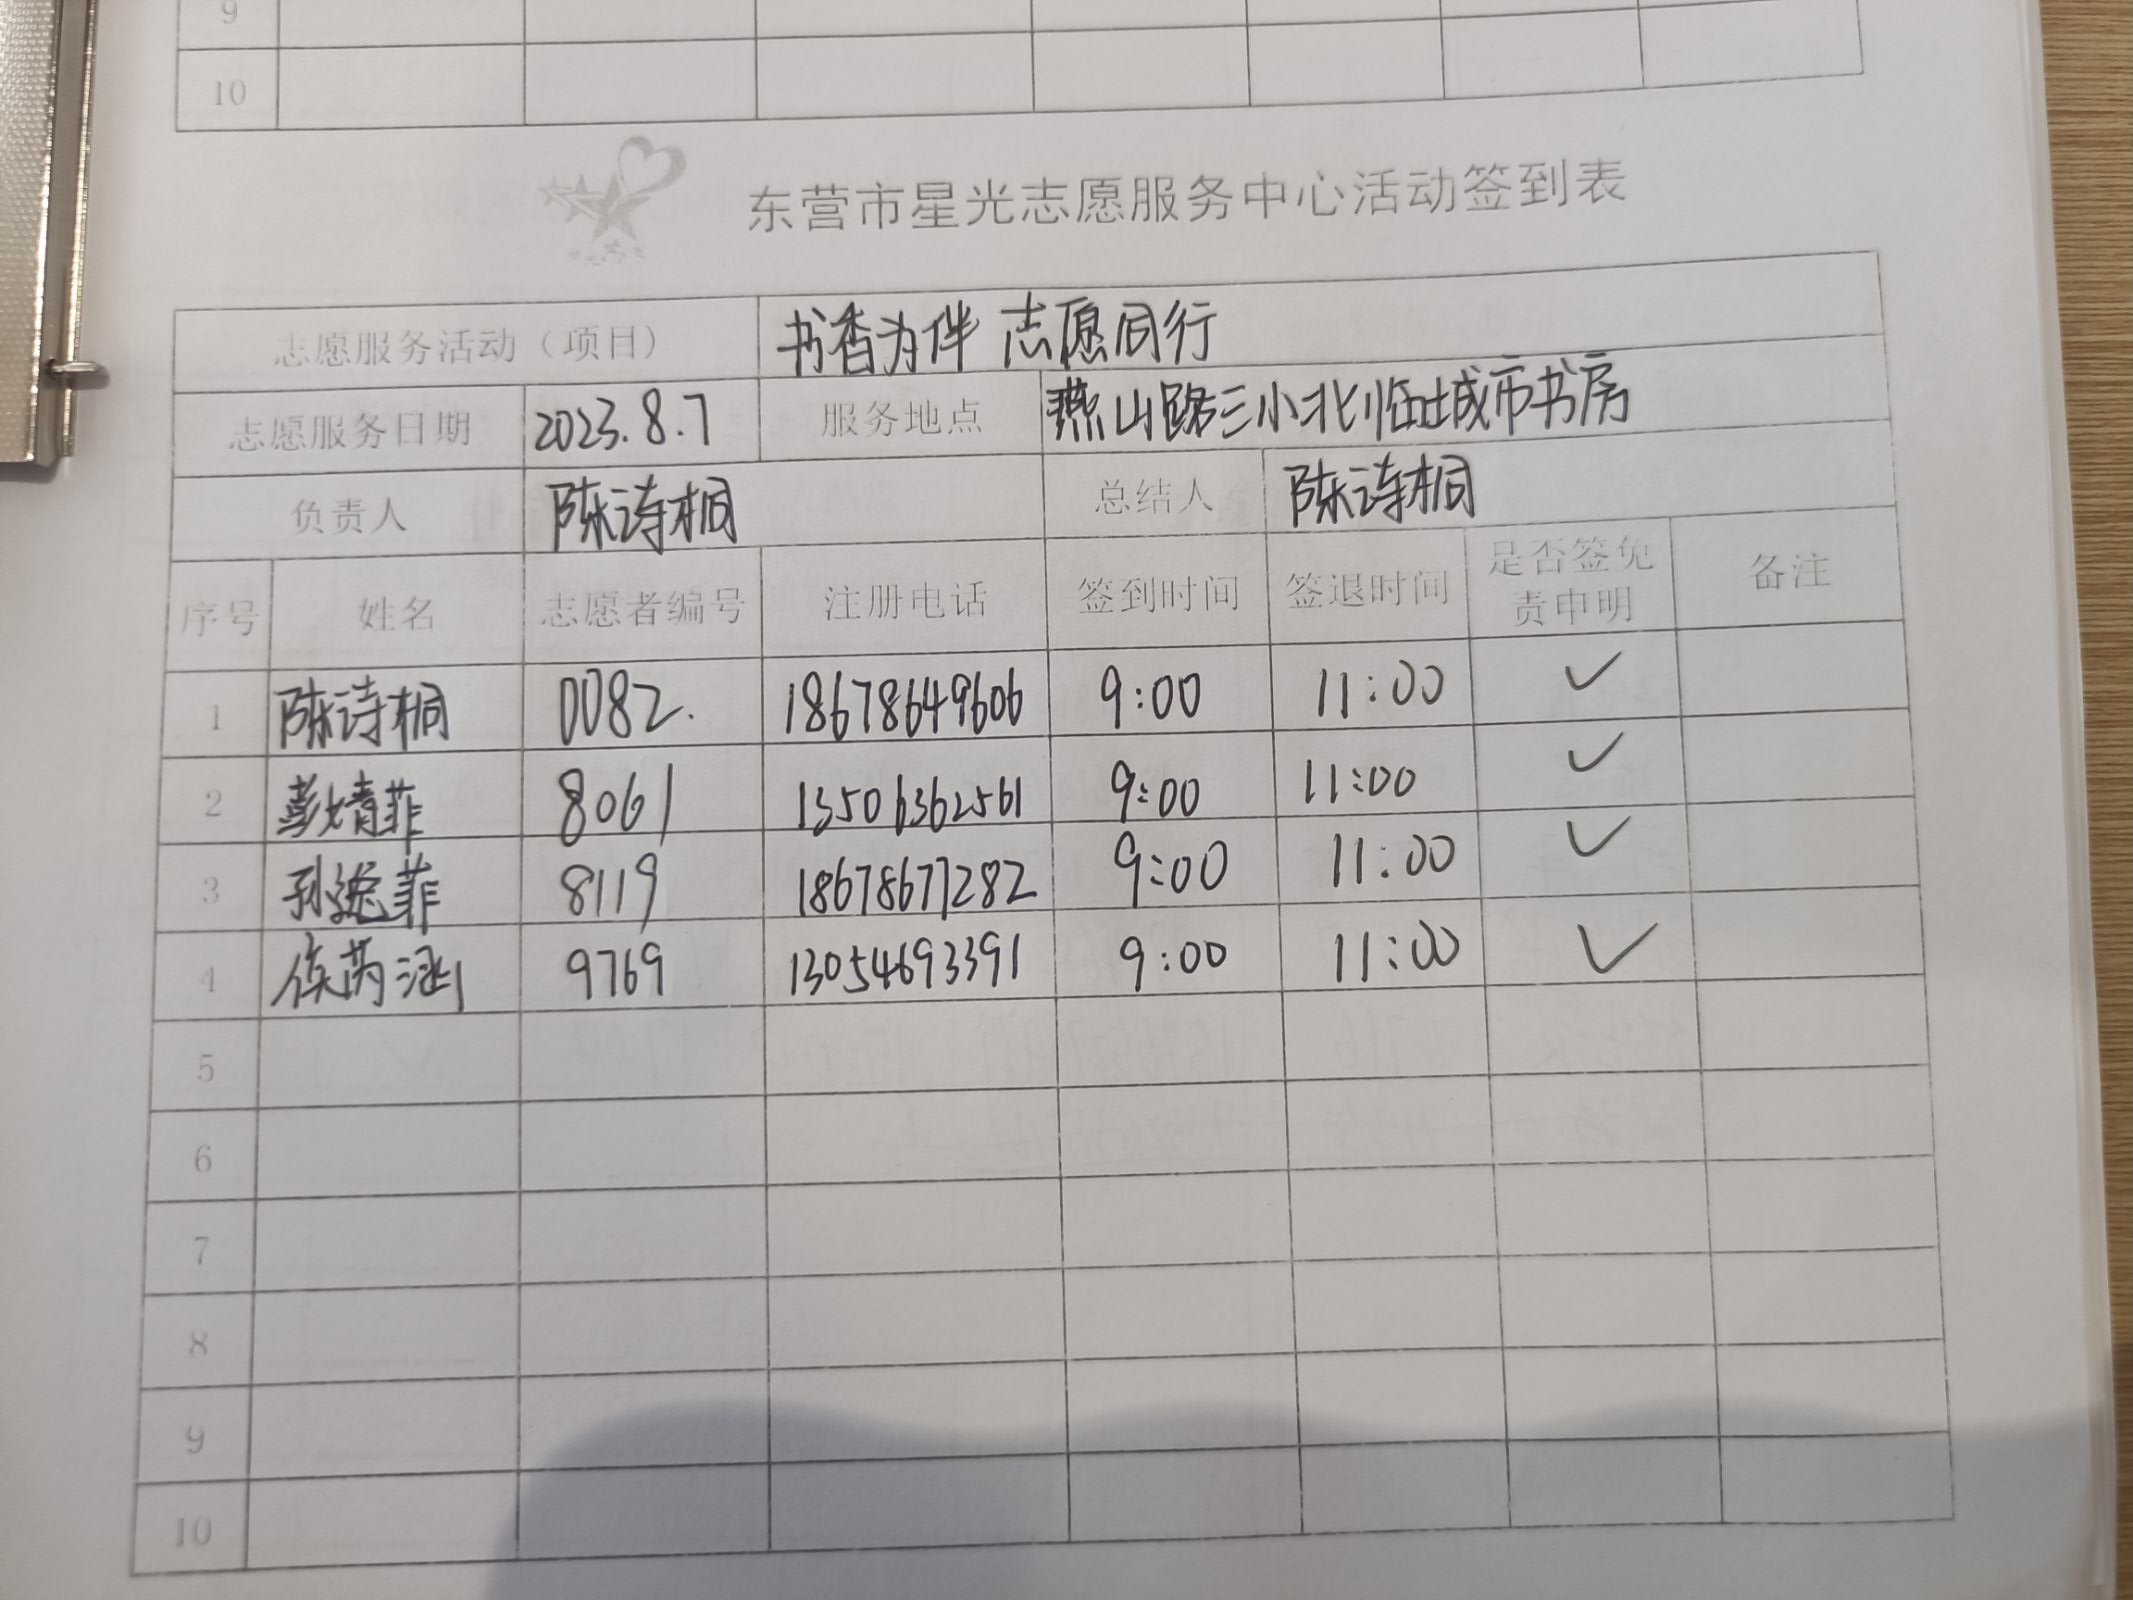 9
10
东营市星光志愿服务中心活动签到表
志愿服务活动（项目） 书香为伴 志愿同行
志愿服务日期 2023.8.7 服务地点 燕山路三小北临城市书房
负责人 陈诗桐 总结人 陈诗桐
序号 姓名 志愿者编号 注册电话 签到时间 签退时间 是否签免责申明 备注
1 陈诗桐 0082. 18678649606 9:00 11:00 ✓
2 彭婧菲 8061 13506362561 9:00 11:00 ✓
3 孙逸菲 8119 18678677282 9:00 11:00 ✓
4 侯芮涵 9769 13054693391 9:00 11:00 ✓
5
6
7
8
9
10